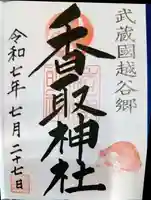 武蔵國越谷郷
香取神社
令和七年 七月二十七日